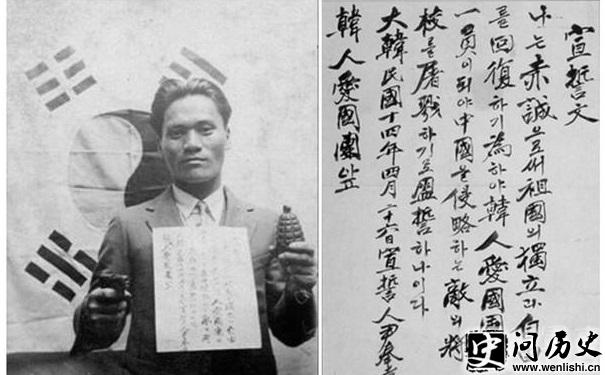 宣誓文
나는 赤誠으로써 祖國의 獨立과 自
를 回復하기 爲하야 韓人愛國團
一員이 되야 中國을 侵略하는 敵의 將
校를 屠戮하기로 盟誓하나이다
大韓民國十四年四月二十六日 宣誓人 尹奉
韓人愛國團 앞
问历史
www.wenlishi.cn